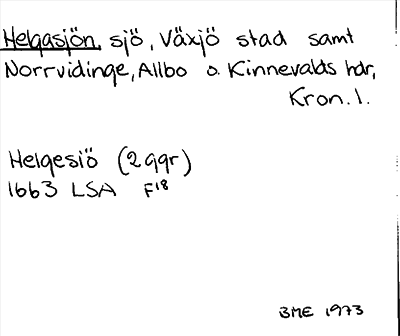 Helgasjön, sjö, Växjö stad samt
Norrvidinge, Allbo o. Kinnevalds hdr,
Kron. l.
Helgesiö (2 ggr)
1663 LSA F18
BME 1973